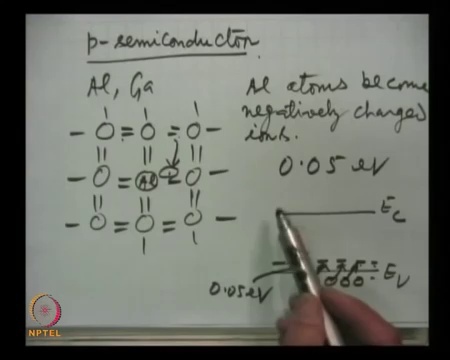 p-semiconductor
Al, Ga
Al atoms become
negatively charged
ions.
Al
0.05 eV
Ec
Ev
0.05 eV
NPTEL